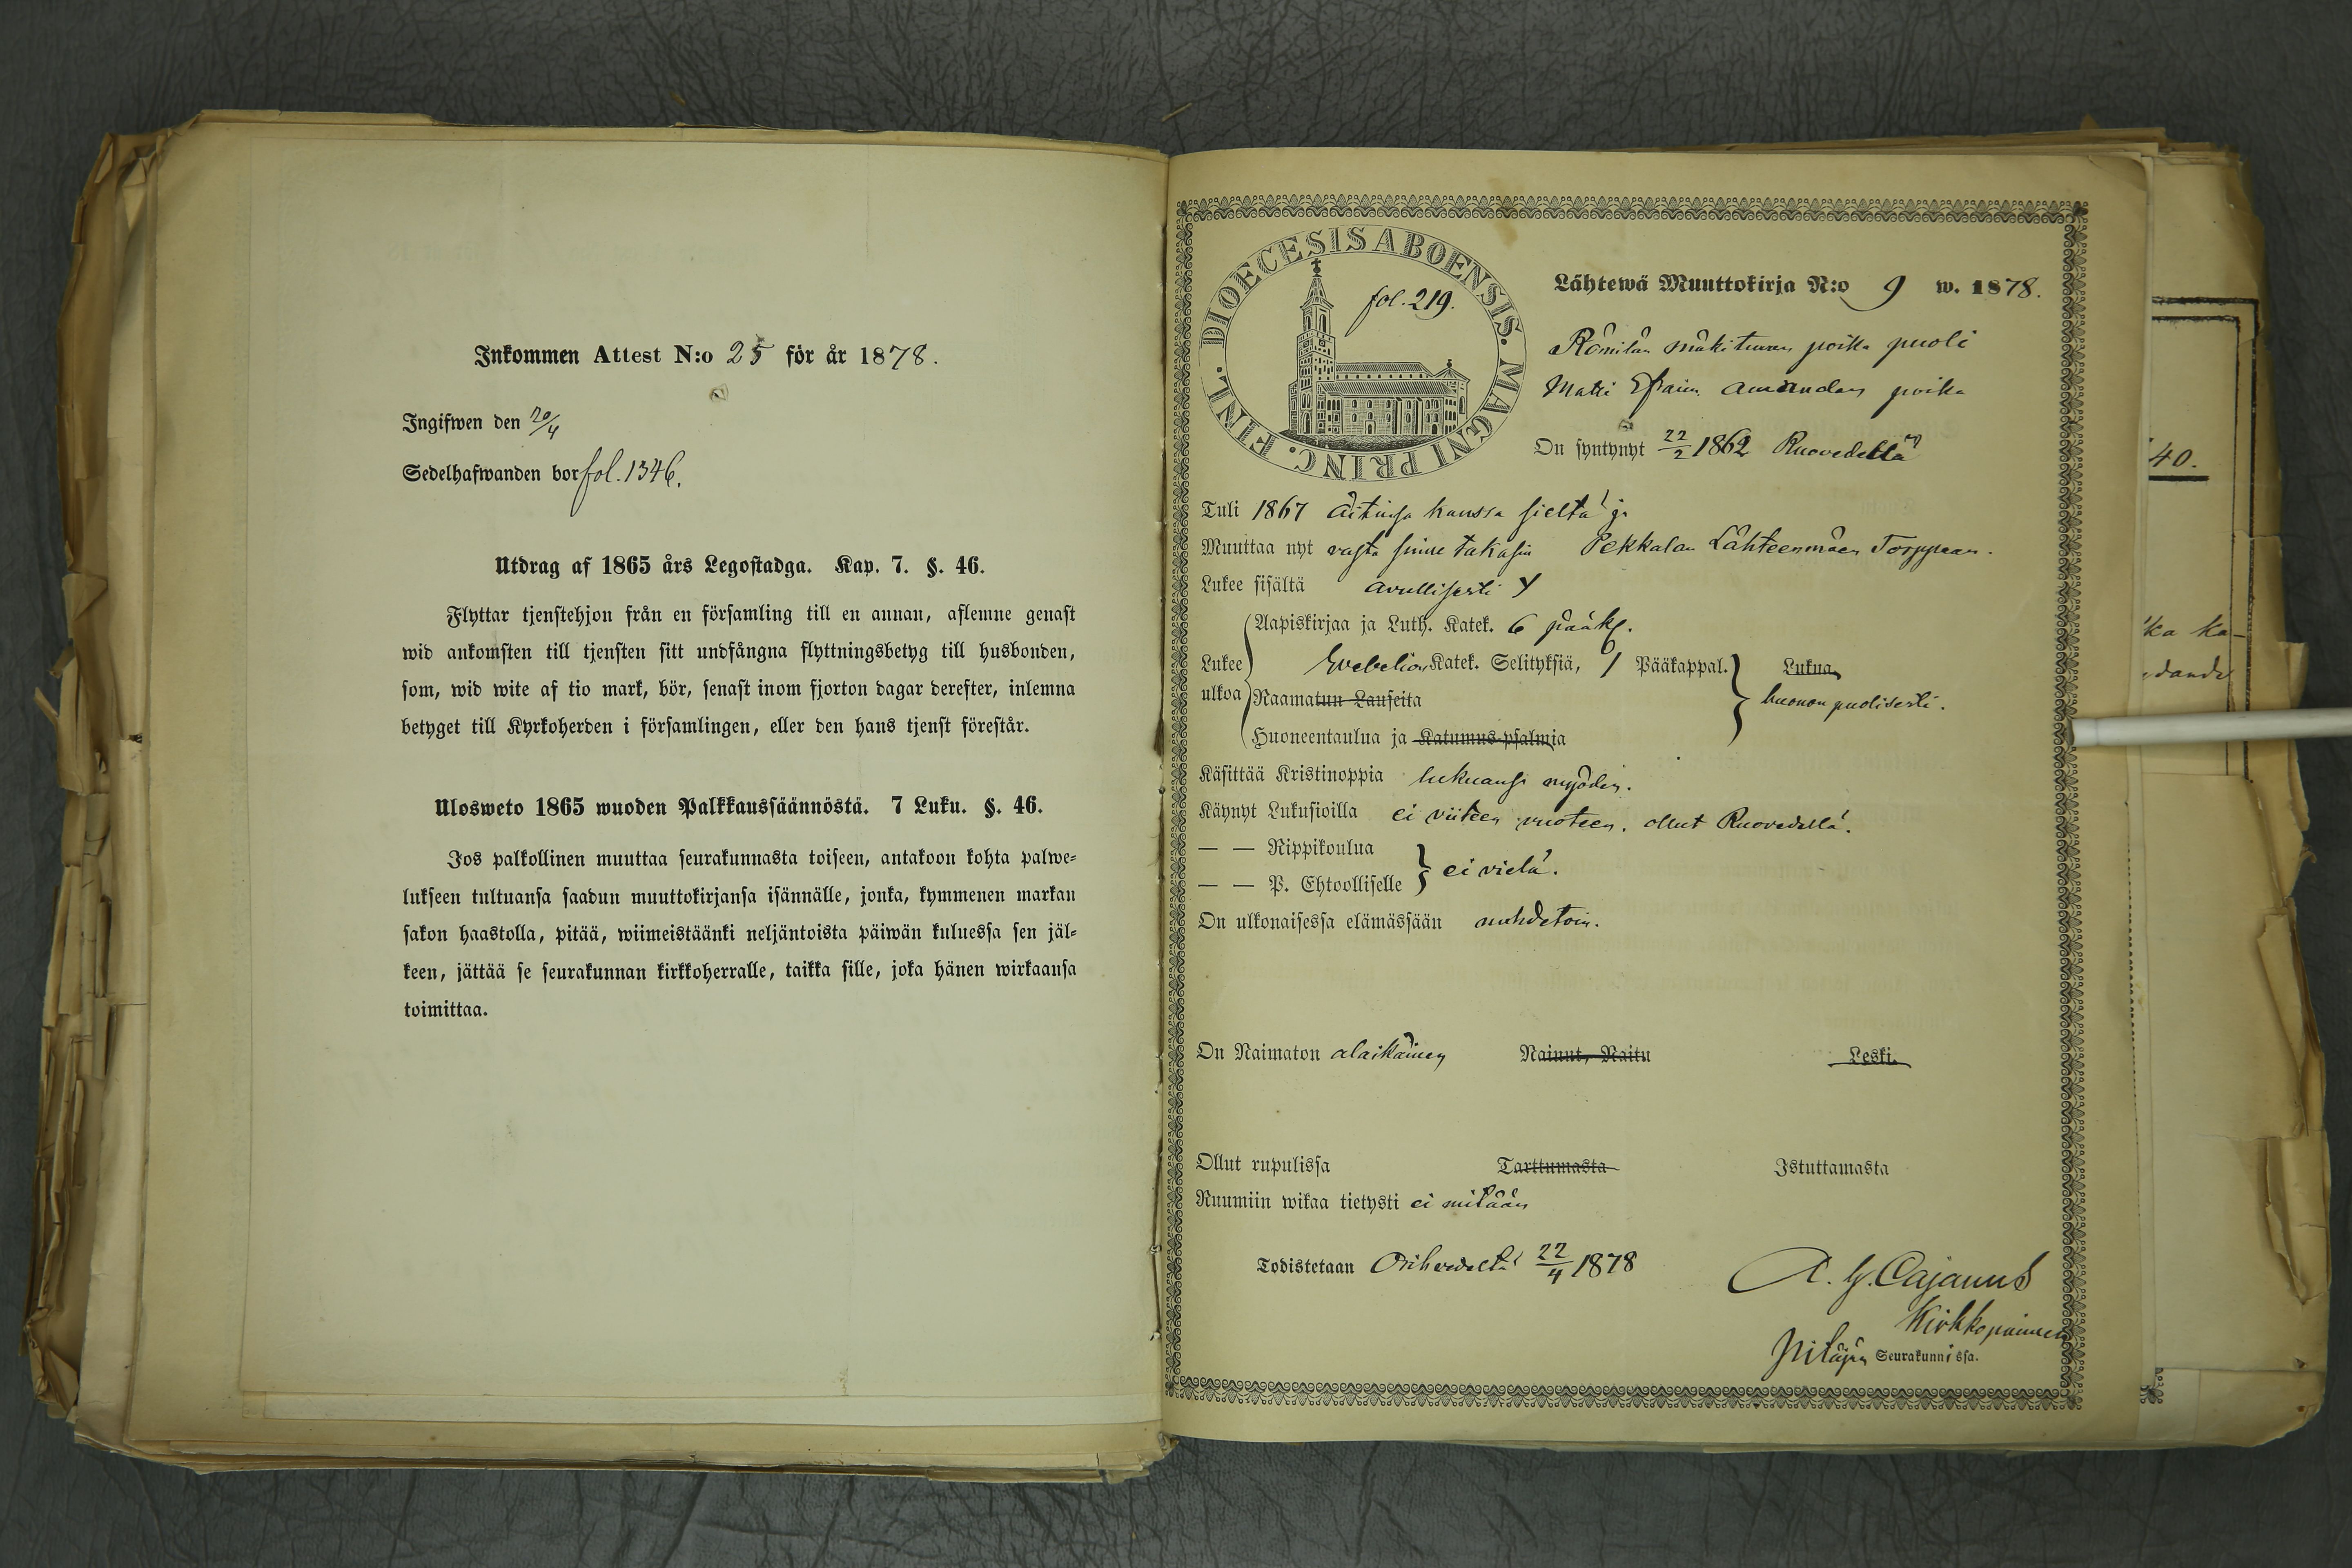 Inkommen Attest N:o 25 för år 1878.
Ingifwen den 20/4
Sedelhafwanden bor fol. 1346.
Utdrag af 1865 års Legostadga. Kap. 7. §. 46.
Flyttar tjenstehjon från en församling till en annan, aflemne genast
wid ankomsten till tjensten sitt undfångna flyttningsbetyg till husbonden,
som, wid wite af tio mark, bör, senast inom fjorton dagar derefter, inlemna
betyget till Kyrkoherden i församlingen, eller den hans tjenst förestår.
Ulosweto 1865 wuoden Palkkaussäännöstä. 7 Luku. §. 46.
Jos palkollinen muuttaa seurakunnasta toiseen, antakoon kohta palwe-
lukseen tultuansa saadun muuttokirjansa isännälle, jonka, kymmenen markan
sakon haastolla, pitää, wiimeistäänki neljäntoista päiwän kuluessa sen jäl-
keen, jättää se seurakunnan kirkkoherralle, taikka sille, joka hänen wirkaansa
toimittaa.
DIOECESIS ABOENSIS. MAGNI PRINC. FINL.
fol. 219.
Lähtewä Muuttokirja N:o 9 w. 1878.
Römilän mäkituvan poika puoli
Matti Efraim Amandan poika
On syntynyt 22/2 1862 Ruovedellä
Tuli 1867 äitinsä kanssa sieltä ja
Muuttaa nyt vasta sinne takasin Pekkalan Lähteenmäen Torppaan.
Lukee sisältä avullisesti
Lukee ulkoa
Aapiskirjaa ja Luth. Katek. 6 pääk.
Svebelion Katek. Selityksiä, 1 Pääkappal.
Raamatun Lauseita
Huoneentaulua ja Katumus-psalmia
Lukua
huonon puolisesti.
Käsittää Kristinoppia lukuansa myöden.
Käynyt Lukusioilla ei viiteen vuoteen. ollut Ruovedellä.
— — Rippikoulua
— — P. Ehtoolliselle
ei vielä.
On ulkonaisessa elämässään nuhdetoin.
On Naimaton alaikäinen Nainut, Naitu Leski.
Ollut rupulissa Tarttumasta Istuttamasta
Ruumiin wikaa tietysti ei mitään
Todistetaan Orihvedeltä 22/4 1878
A. G. Cajanus
Kirkkopaimen
Pitäjän Seurakunnissa.
40.
ka ka-